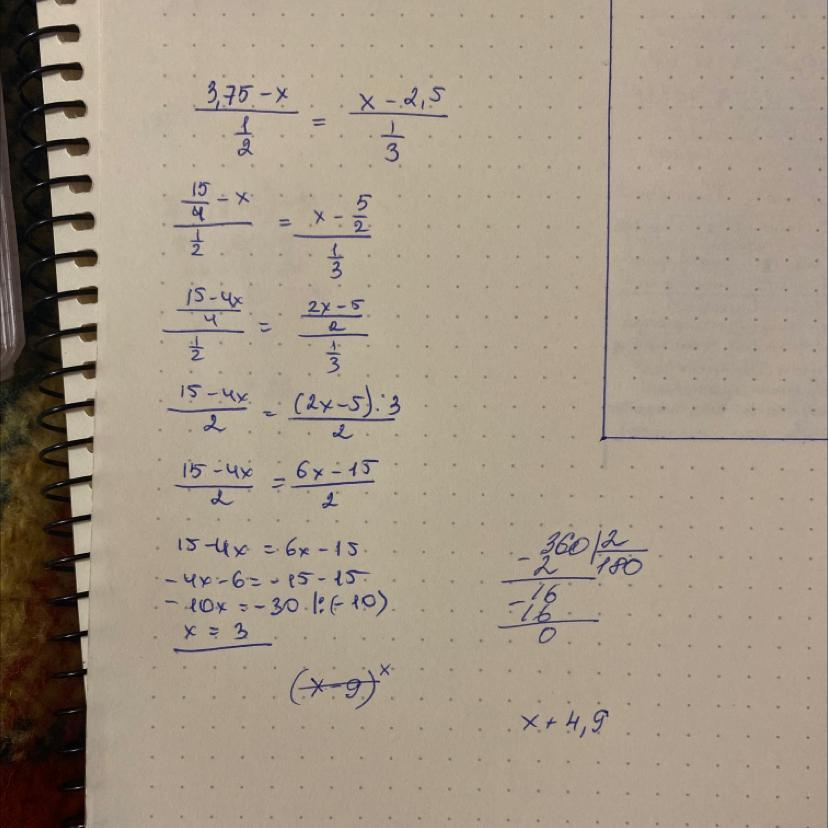 3,75 - x / 1/2 = x - 2,5 / 1/3
15/4 - x / 1/2 = x - 5/2 / 1/3
15 - 4x / 4 / 1/2 = 2x - 5 / 2 / 1/3
15 - 4x / 2 = (2x - 5) · 3 / 2
15 - 4x / 2 = 6x - 15 / 2
15 - 4x = 6x - 15
-4x - 6 = -15 - 15
-10x = -30 |:(-10)
x = 3
(x - 9)^x
360 | 2
- 2 180
- 16
16
0
x + 4,9